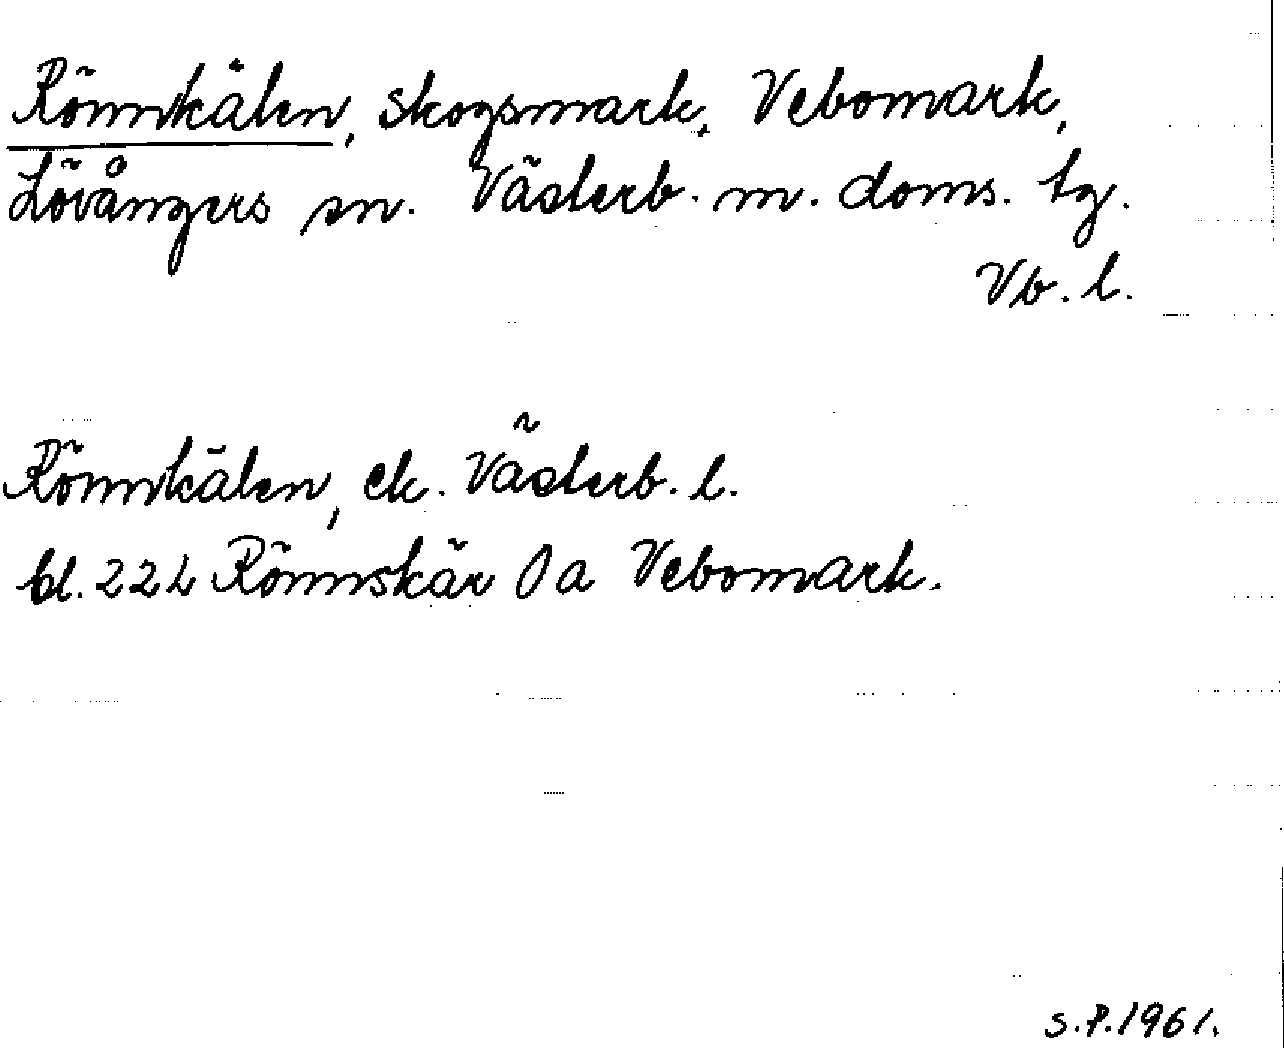 Rönnkälen, skogsmark, Vebomark,
Lövångers sn. Västerb. m. doms. tg.
Vb. l.
Rönnkälen, ek. Västerb. l.
bl. 22 L Rönnskär O a Vebomark.
S.P. 1961.